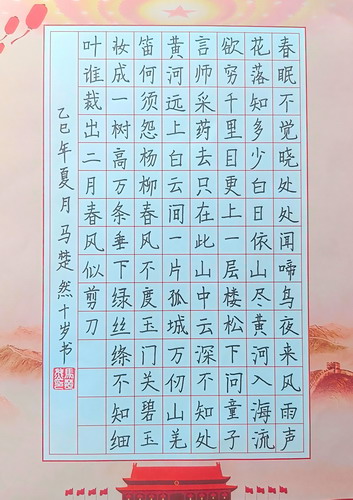 春眠不觉晓处处闻啼鸟夜来风雨声
花落知多少白日依山尽黄河入海流
欲穷千里目更上一层楼松下问童子
言师采药去只在此山中云深不知处
黄河远上白云间一片孤城万仞山羌
笛何须怨杨柳春风不度玉门关碧玉
妆成一树高万条垂下绿丝绦不知细
叶谁裁出二月春风似剪刀
乙巳年夏月马楚然十岁书